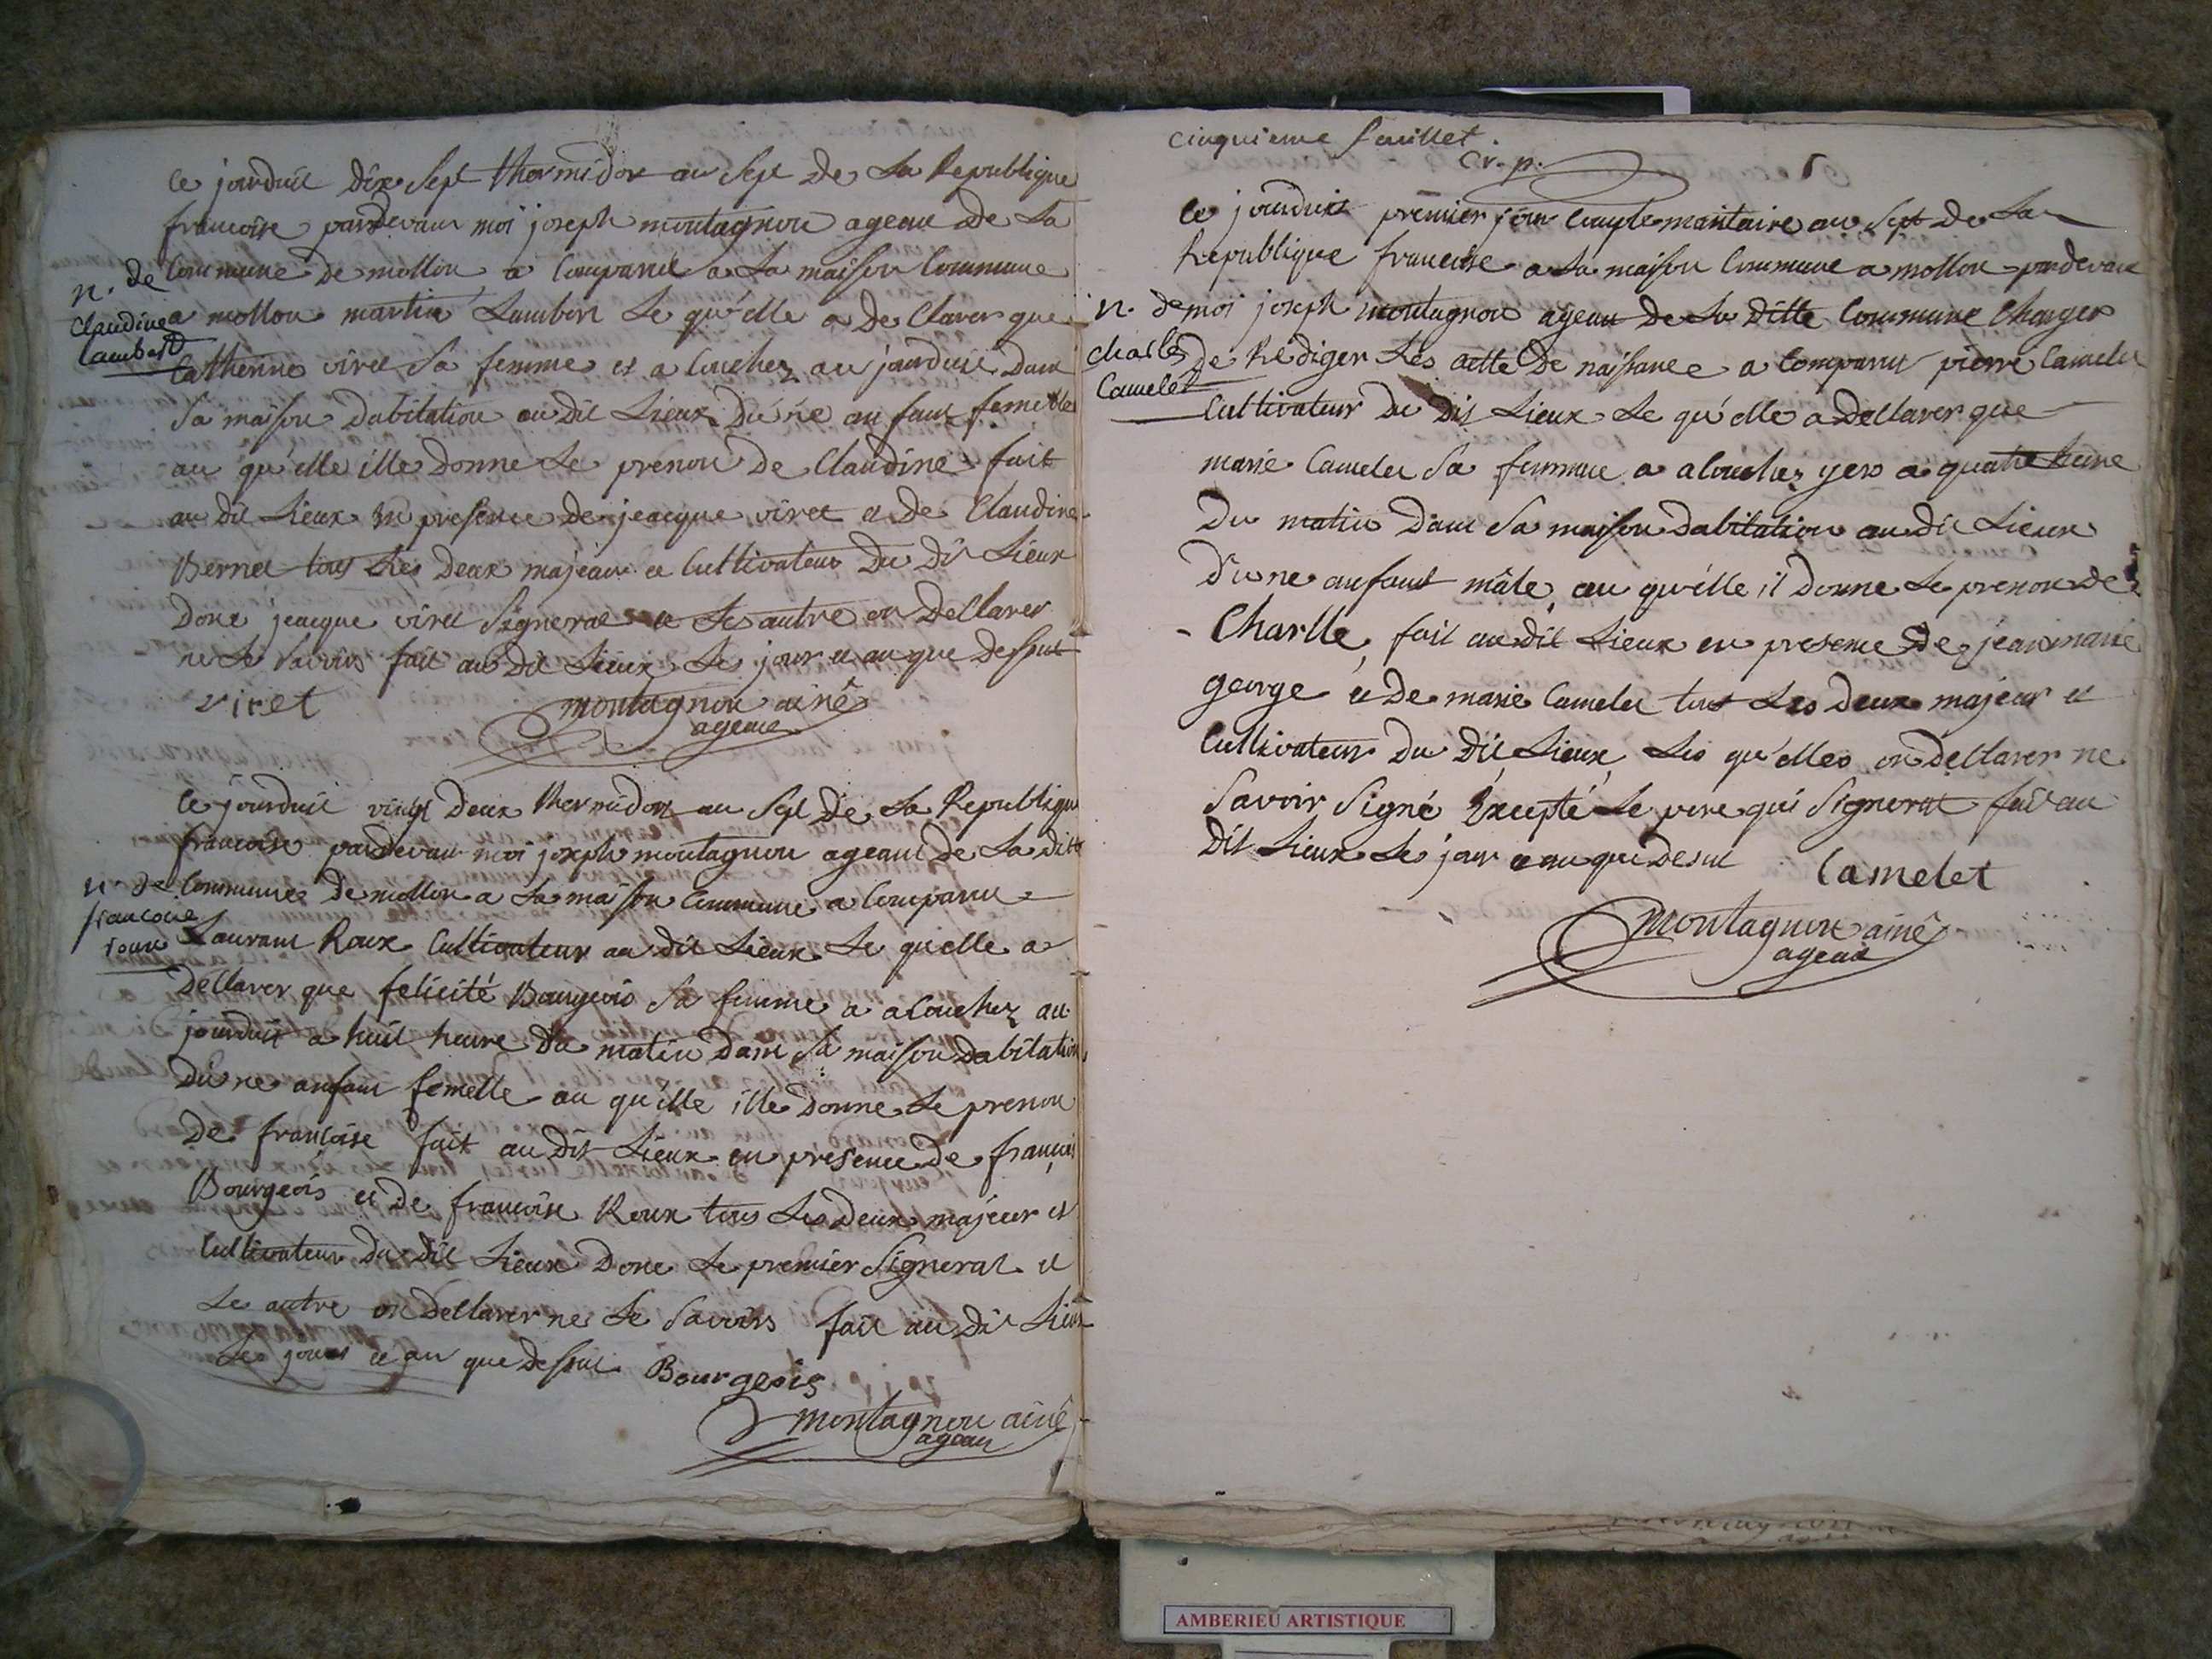 ce jourduit dix Sept thermidor an Sept de La Republique
francoise pardevant moi joseph montagnon ageau de La
Commune de mollon a Comparut a La maison Commune
n. de
Claudine
Lambert
a mollon martin Lambert Le qu'elle a de Clarer que
Catherine viret Sa femme et a Couchez au jourduit Dans
Sa maison Dabitation au dit Lieux Du'ne anfant femelle
au qu'elle ille Donne Le prenon de Claudine fait
au dit Lieux en presence de jeacque viret et de Claudine
Bernet tous Les deux majeur et Cultivateur Du Dit Lieux
Dont jeacque viret Signerat et Le autre on Dellarer
ne Le Savoirs fait au Dit Lieux Le jour et an que Dessut
viret
montagnon ainê
ageau
Ce jourduit vingt Deux thermidor an Sept De La Republique
francoise pardevant moi joseph montagnon ageaut de La ditte
n. de
francoise
roux
Commune De mollon a La maison Commune a Comparut
Laurant Roux Cultivateur au dit Lieux Le qu'elle a
Dellarer que felicité Bourgeois Sa femme a aCouchez au
jourduit a huit heure Du matin Dans Sa maison Dabitation
Du'ne anfant femelle au qu'elle ille Donne Le prenon
De françoise fait au Dit Lieux en presence de françois
Bourgeois et de francoise Roux tous Les Deux majeur et
Cultivateur Du dit Lieux Dont Le premier Signerat et
Le autre on Dellarer ne Le Savoirs fait au Dit Lieux
Le jour et an que Dessut Bourgeois
montagnon ainê
ageau
cinquieme feuillet.
cr. p.
5
Ce jourduit premier jour Comple mantaire an Sept de La
Republique francoise a La maison Commune a mollon pardevant
n. de
charles
Camelet
moi joseph montagnon ageau de La Ditte Commune Charger
de Rédiger Les actte De naissance a Comparut pierre Camelet
Cultivateur Du Dit Lieux Le qu'elle a Dellarer que
marie Camelet Sa femme a aCouchez yers a quatre heure
Du matin Dans Sa maison Dabitation au dit Lieux
D'une anfant mâle, au qu'elle il Donne Le prenon de
Charlle, fait au dit Lieux en presence De jean marie
george et De marie Camelet tous Les Deux majeur et
Cultivateur Du Dit Lieux Les qu'elles on Dellarer ne
Savoir Signé Excepté Le pere qui Signerat fait au
Dit Lieux Le jour et an que desut Camelet
montagnon ainê
ageau
AMBERIEU ARTISTIQUE